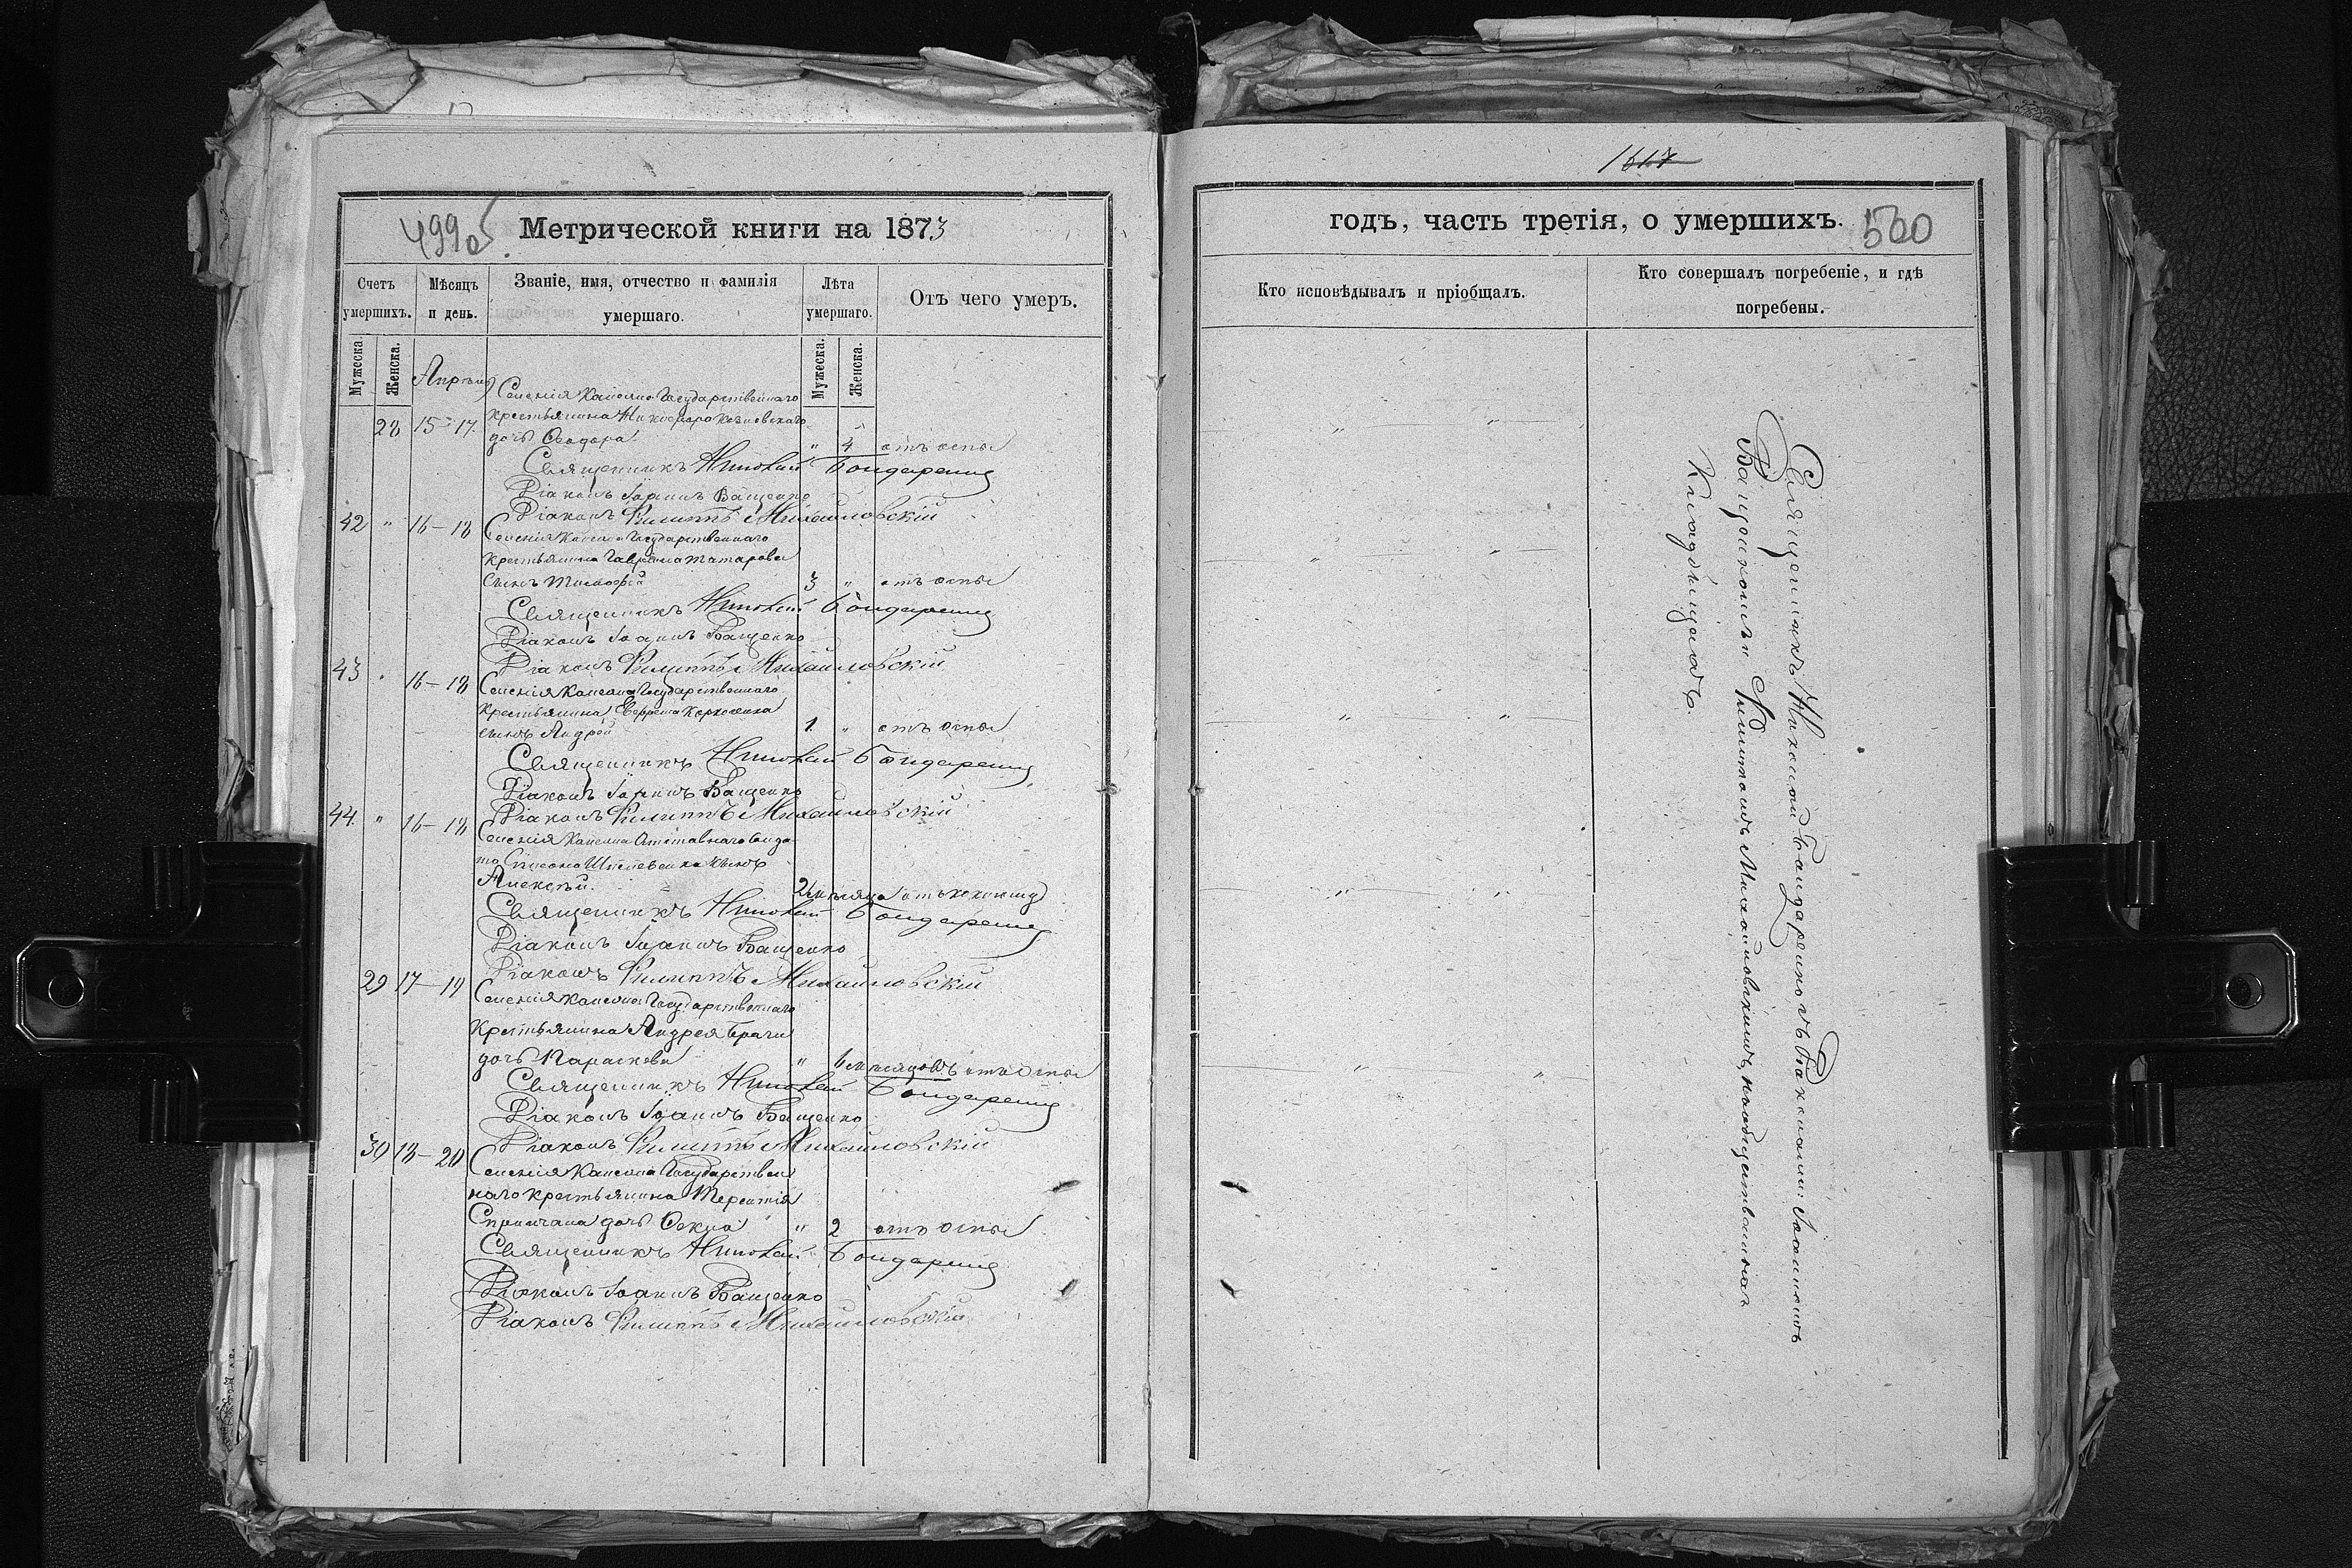 499 об.
Метрической книги на 1873
Счетъ умершихъ.
Мѣсяцъ и день.
Званіе, имя, отчество и фамилія умершаго.
Лѣта умершаго.
Отъ чего умеръ.
Мужеска.
Женска.
Мужеска.
Женска.
Апрѣль
Селенія Государственнаго
28 15-17. крестьянина Никифора
дочь Ѳеодора " 4 отъ оспы
Священникъ Николай Бондаренко
Діаконъ Іоаннъ Ващенко
Діаконъ Филиппъ Михайловскій
42 " 16-18 Селенія Государственнаго
крестьянина Гавріила Татарова
сынъ Тимофей 3 " отъ оспы
Священникъ Николай Бондаренко
Діаконъ Іоаннъ Ващенко
Діаконъ Филиппъ Михайловскій
43 " 16-18 Селенія Государственнаго
крестьянина
сынъ Андрей 1 " отъ оспы
Священникъ Николай Бондаренко
Діаконъ Іоаннъ Ващенко
Діаконъ Филиппъ Михайловскій
44 " 16-18 Селенія Отставнаго солда
та сынъ
Алексѣй. 2 мѣсяца отъ
Священникъ Николай Бондаренко
Діаконъ Іоаннъ Ващенко
Діаконъ Филиппъ Михайловскій
29 17-19 Селенія Государственнаго
крестьянина Андрея
дочь Параскева " 6 мѣсяцовъ отъ оспы
Священникъ Николай Бондаренко
Діаконъ Іоаннъ Ващенко
Діаконъ Филиппъ Михайловскій
30 18-20 Селенія Государствен
наго крестьянина Терентія
дочь Ѳекла " 2 отъ оспы
Священникъ Николай Бондаренко
Діаконъ Іоаннъ Ващенко
Діаконъ Филиппъ Михайловскій
1617
годъ, часть третія, о умершихъ.
500
Кто исповѣдывалъ и пріобщалъ.
Кто совершалъ погребеніе, и гдѣ погребены.
Священникъ Николай Бондаренко съ Діаконами: Іоанномъ
Ващенкомъ и Филиппомъ Михайловскимъ, на общественномъ
Кладбищѣ.